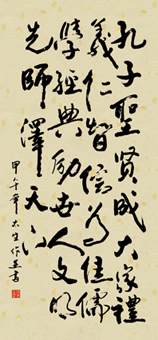 孔子聖賢成大家禮
義仁智信為佳儒
學經典勵世人文明
先師澤天下
甲午年